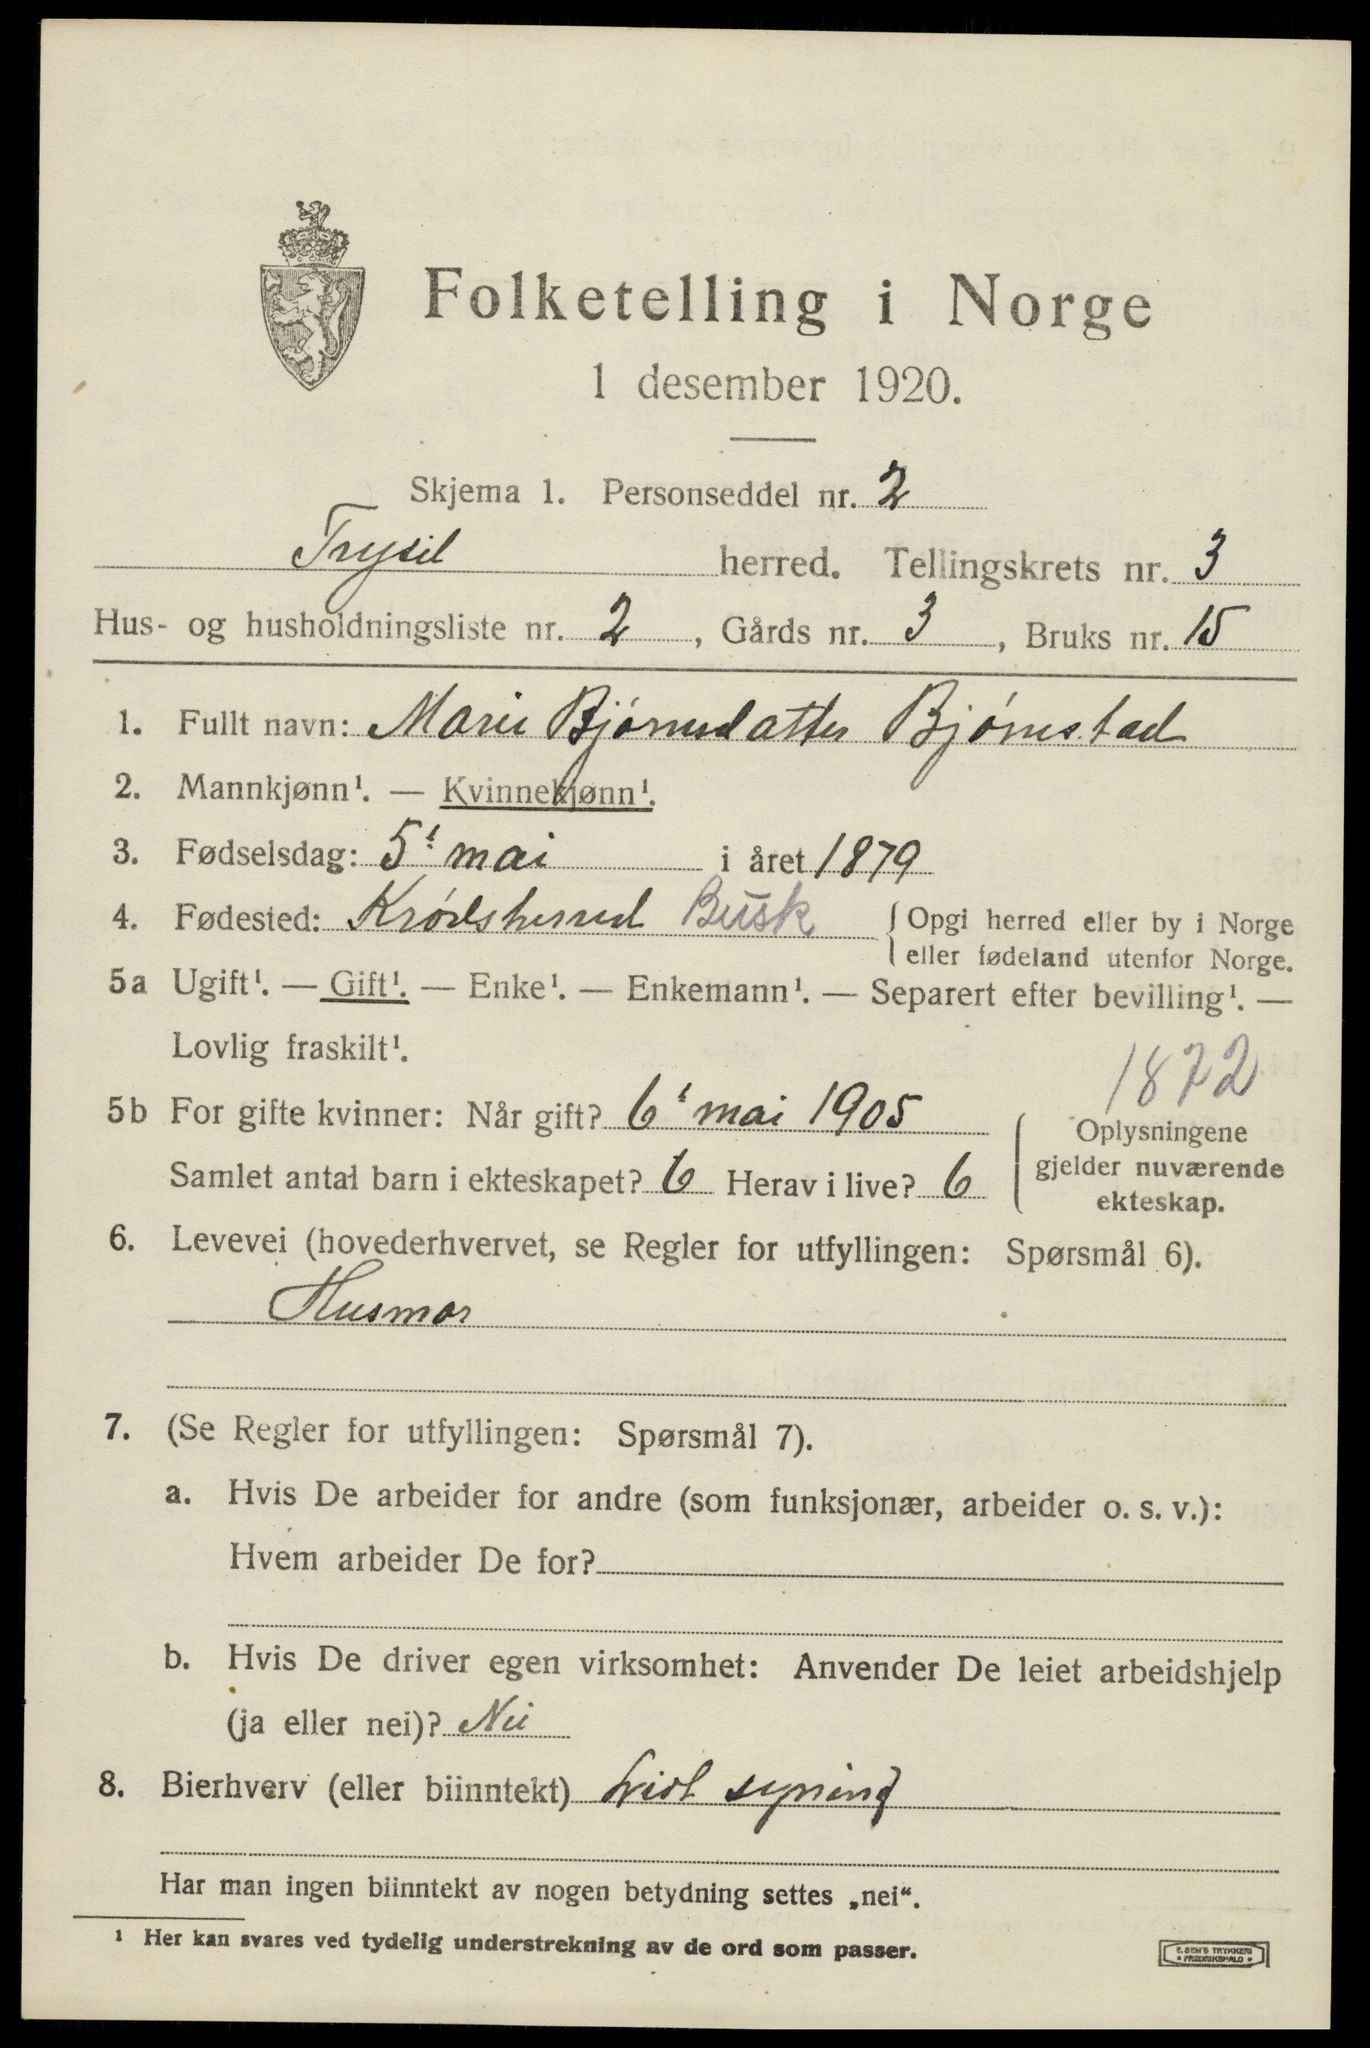 Folketelling i Norge
1 desember 1920.
Skjema 1. Personseddel nr. 2
Trysil herred. Tellingskrets nr. 3
Hus- og husholdningsliste nr. 2, Gårds nr. 3, Bruks nr. 15
1. Fullt navn: Marie Bjørnsdatter Bjørnstad
2. Mannkjønn¹. — Kvinnekjønn¹.
3. Fødselsdag: 5t mai i året 1879
4. Fødested: Krødsherred Busk { Opgi herred eller by i Norge
eller fødeland utenfor Norge.
5a Ugift¹. — Gift¹. — Enke¹. — Enkemann¹. — Separert efter bevilling¹. —
Lovlig fraskilt¹.
1872
5b For gifte kvinner: Når gift? 6t mai 1905
Samlet antal barn i ekteskapet? 6 Herav i live? 6
Oplysningene
gjelder nuværende
ekteskap.
6. Levevei (hovederhvervet, se Regler for utfyllingen: Spørsmål 6).
Husmor
7. (Se Regler for utfyllingen: Spørsmål 7).
a. Hvis De arbeider for andre (som funksjonær, arbeider o. s. v.):
Hvem arbeider De for?
b. Hvis De driver egen virksomhet: Anvender De leiet arbeidshjelp
(ja eller nei)? Nei
8. Bierhverv (eller biinntekt) syning
Har man ingen biinntekt av nogen betydning settes „nei“.
¹ Her kan svares ved tydelig understrekning av de ord som passer.
E. SEM'S TRYKKERI
• FREDRIKSHALD •